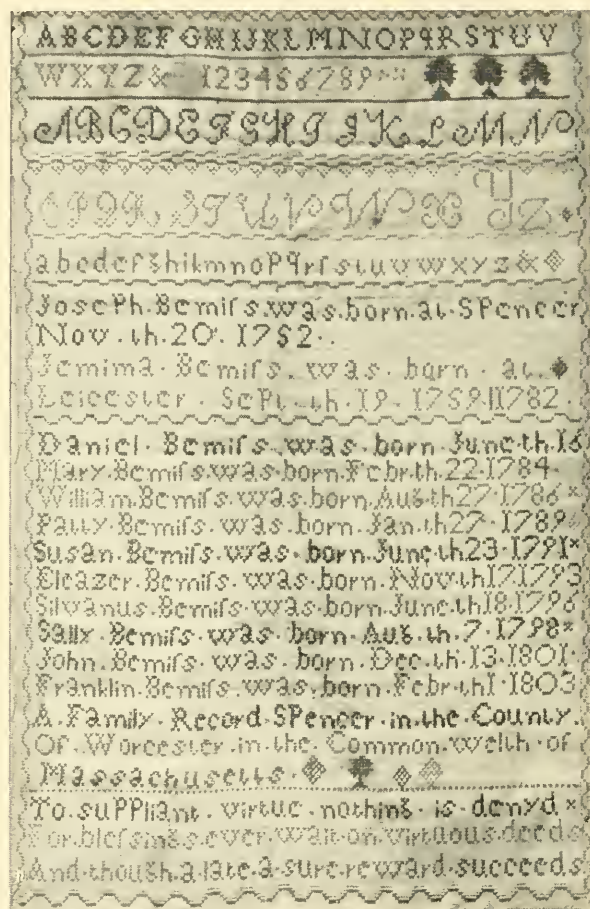 ABCDEFGHIJKLMNOPQRSTUV
WXYZ& 123456789
ABCDEFGHIJKLMN
OPQRSTUVWXYZ
abcdefghikmnoPqrſstuvwxyz&
JosePh.Bemiſs.was.born.at.SPencer
Nov.th.20.1752..
Jemima.Bemiſs.was.born.at.
Leicester.SePt.th.19.1759||1782.
Daniel.Bemiſs.was.born.June.th.16
Mary.Bemiſs.was.born.Febr.th.22.1784.
William.Bemiſs.was.born.Aug.th27.1786
Patty.Bemiſs.was.born.Jan.th27.1789
Susan.Bemiſs.was.born.June.th23.1791
Eleazer.Bemiſs.was.born.Nov.th17.1793
Silvanus.Bemiſs.was.born.June.th18.1796
Sally.Bemiſs.was.born.Aug.th.7.1798
John.Bemiſs.was.born.Dec.th.13.1801.
Franklin.Bemiſs.was.born.Febr.th1.1803
A.Family.Record.SPencer.in.the.County.
Of.Worcester.in.the.Common.welth.of
Massachusetts.
To.suPPliant.virtue.nothing.is.denyd
For.bleſsings.ever.wait.on.virtuous.deeds
And.though.a.late.a.sure.reward.succeeds